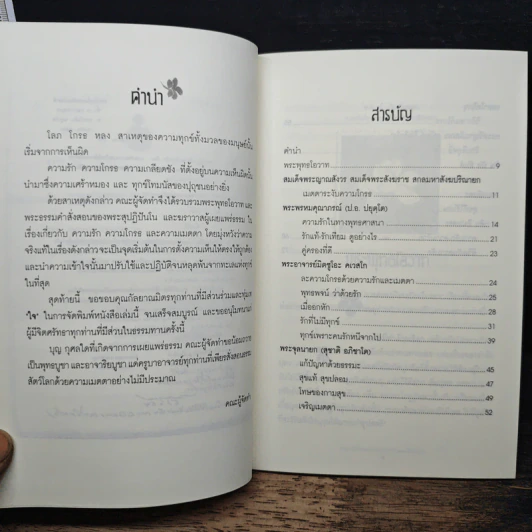 คำนำ
โลภ โกรธ หลง สาเหตุของความทุกข์ทั้งมวลของมนุษย์นั้น
เริ่มจากการเห็นผิด
ความรัก ความโกรธ ความเกลียดชัง ที่ตั้งอยู่บนความเห็นผิดนั้น
นำมาซึ่งความเศร้าหมอง และ ทุกข์โทมนัสของปุถุชนอย่างยิ่ง
ด้วยสาเหตุดังกล่าว คณะผู้จัดทำจึงได้รวบรวมพระพุทธโอวาท และ
พระธรรมคำสั่งสอนของพระสุปฏิปันโน และฆราวาสผู้เผยแพร่ธรรม ใน
เรื่องเกี่ยวกับ ความรัก ความโกรธ และความเมตตา โดยมุ่งหวังว่าความ
จริงแท้ในเรื่องดังกล่าวจะเป็นจุดเริ่มต้นในการดึงความเห็นให้ตรงให้ถูกต้อง
และนำความเข้าใจนั้นมาปรับใช้และปฏิบัติจนหลุดพ้นจากทะเลแห่งทุกข์
ในที่สุด
สุดท้ายนี้ ขอขอบคุณกัลยาณมิตรทุกท่านที่มีส่วนร่วมและทุ่มเท
"ใจ" ในการจัดพิมพ์หนังสือเล่มนี้ จนเสร็จสมบูรณ์ และขออนุโมทนากับ
ผู้มีจิตศรัทธาทุกท่านที่มีส่วนในธรรมทานครั้งนี้
บุญ กุศลใดที่เกิดจากการเผยแพร่ธรรม คณะผู้จัดทำขอน้อมถวาย
เป็นพุทธบูชา และอาจาริยบูชา แด่ครูบาอาจารย์ทุกท่านที่เพียรสั่งสอนธรรม
สัตว์โลกด้วยความเมตตาอย่างไม่มีประมาณ
คณะผู้จัดทำ
สารบัญ
คำนำ
พระพุทธโอวาท 9
สมเด็จพระญาณสังวร สมเด็จพระสังฆราช สกลมหาสังฆปริณายก
เมตตาระงับความโกรธ 11
พระพรหมคุณาภรณ์ (ป.อ. ปยุตฺโต)
ความรักในทางพุทธศาสนา 14
รักแท้-รักเทียม ดูอย่างไร 21
คู่ครองที่ดี 23
พระอาจารย์มิตซูโอะ คเวสโก
ละความโกรธด้วยความรักและเมตตา 24
พุทธพจน์ ว่าด้วยรัก 28
เมื่ออกหัก 31
รักที่ไม่มีทุกข์ 31
ทุกข์เพราะคนรักหนีจากไป 34
พระจุลนายก (สุชาติ อภิชาโต)
แก้ปัญหาด้วยธรรมะ 45
สุขแท้ สุขปลอม 47
โทษของกามสุข 49
เจริญเมตตา 52